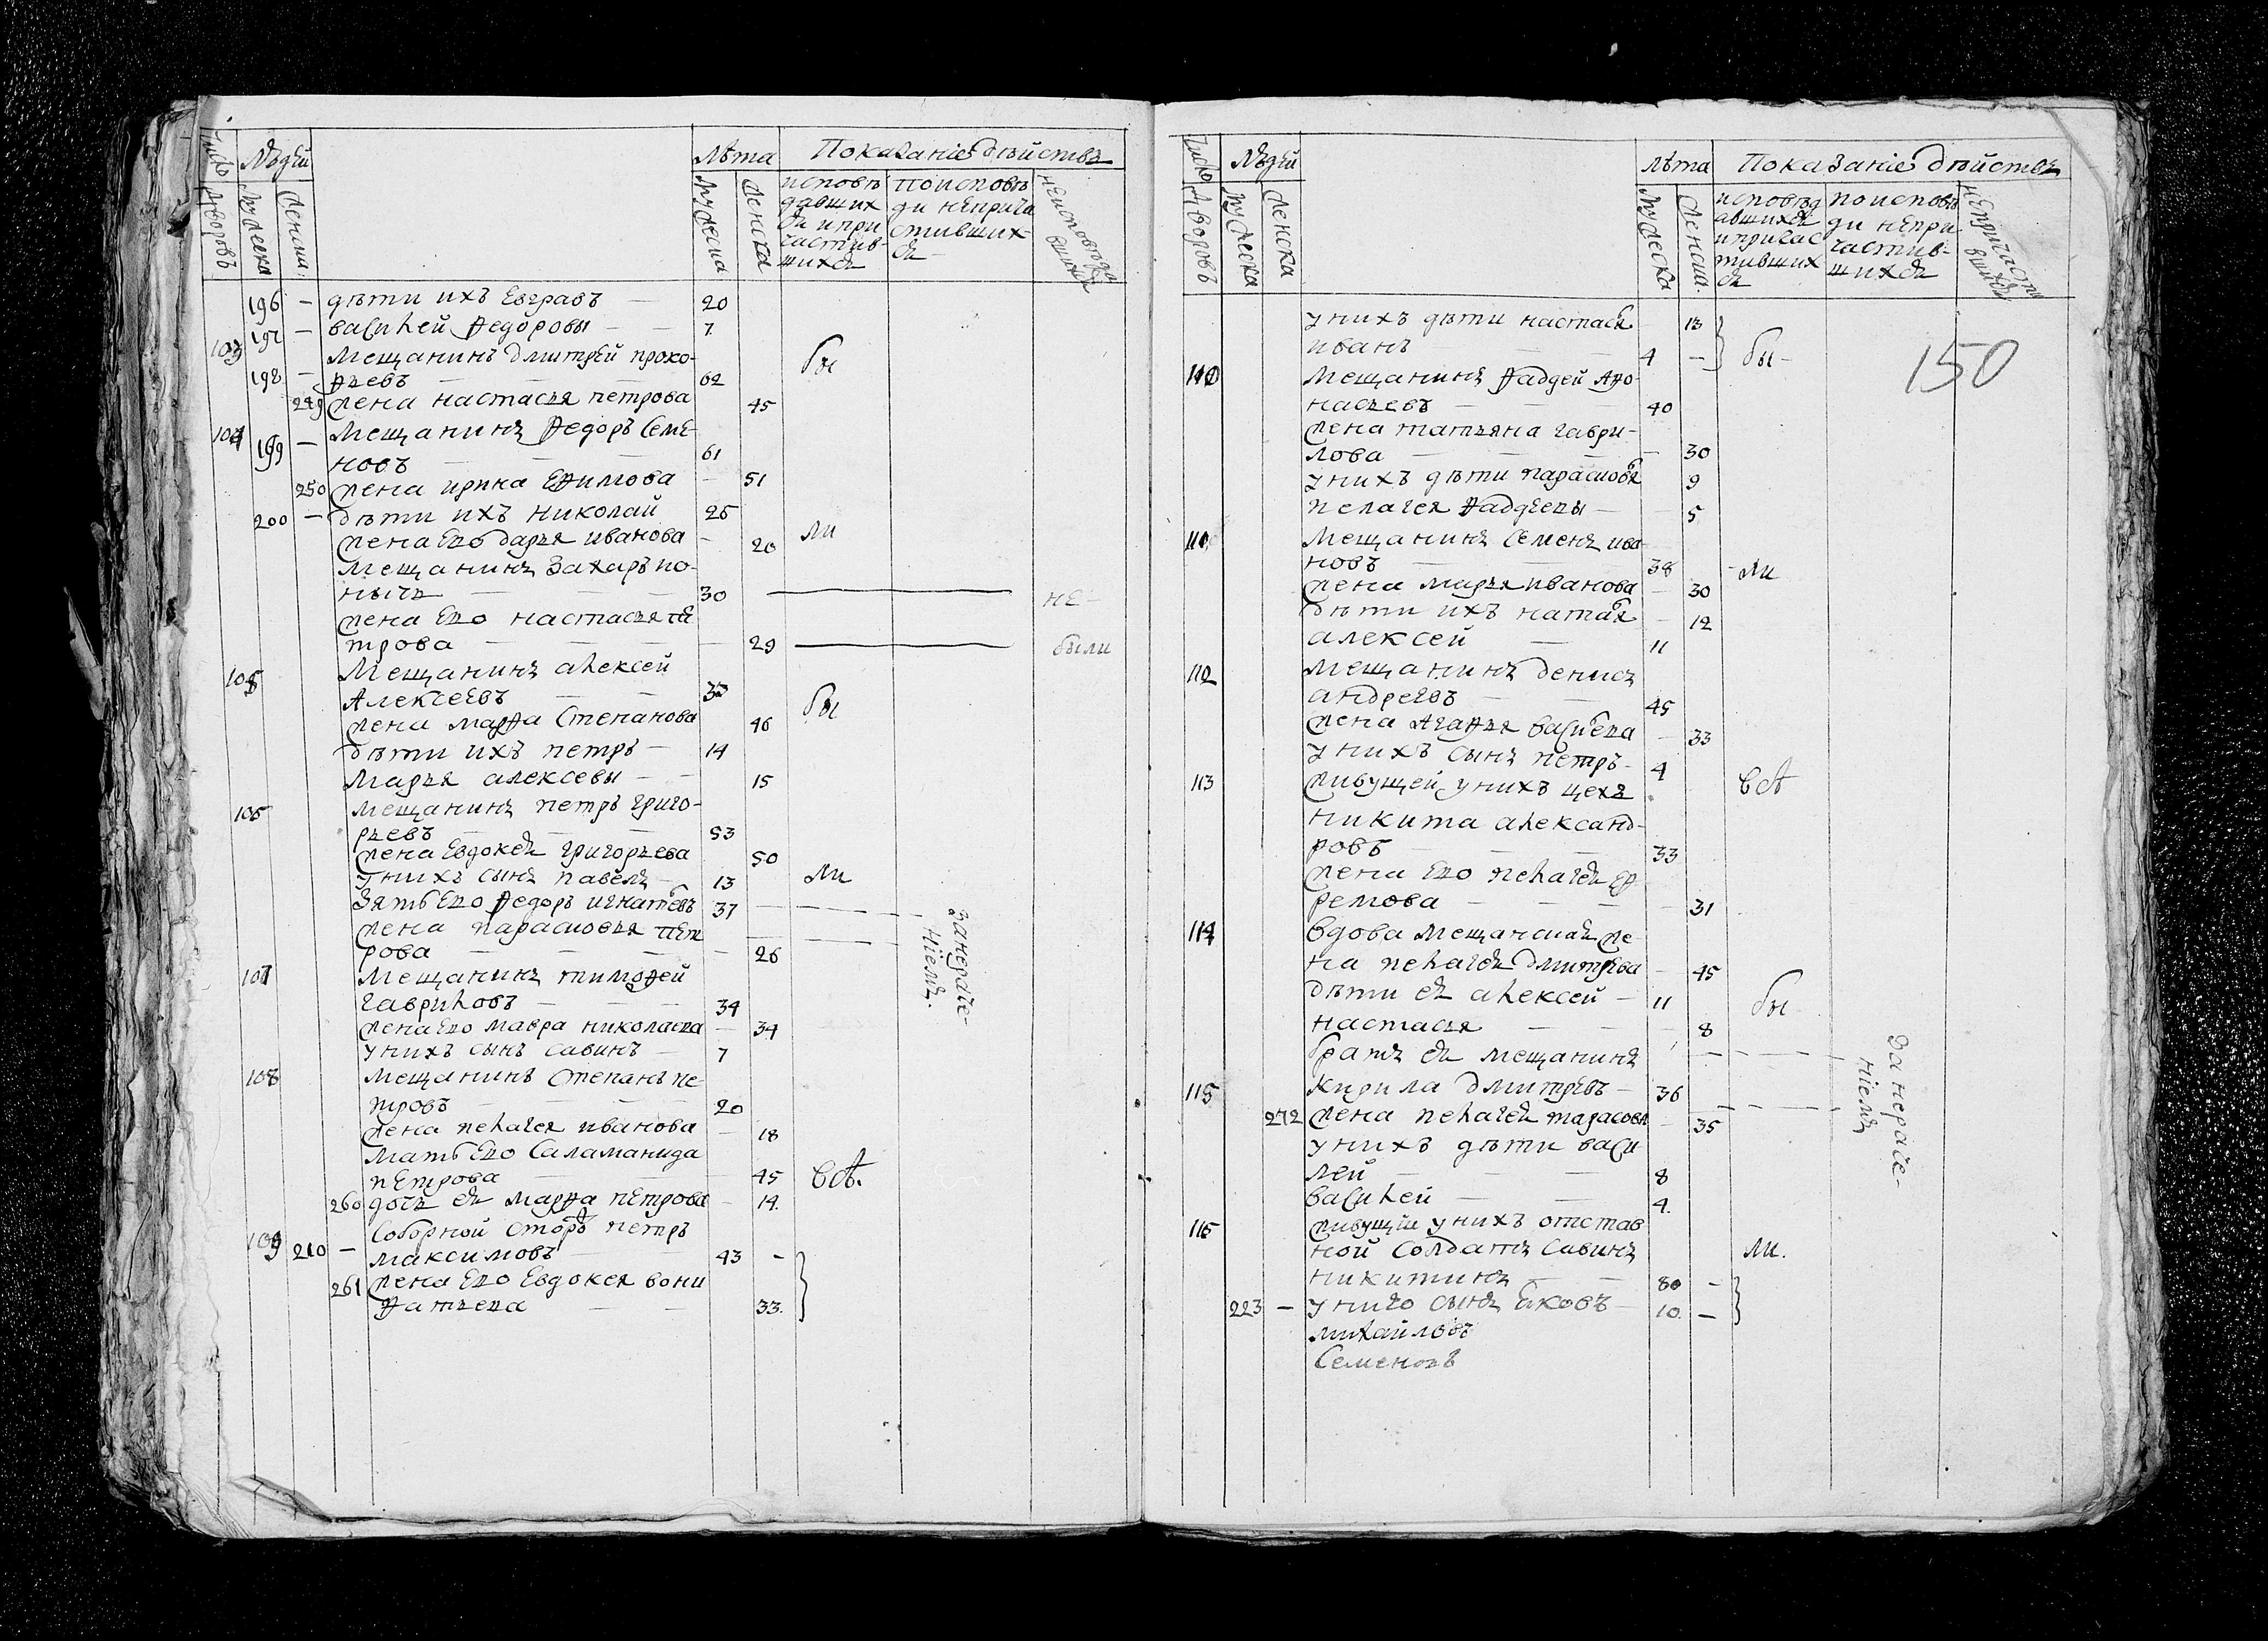 Число дворовъ Людей мужеска женска Лѣта мужеска женска Показаніе дѣйствъ
исповѣдавшихся и причастившихся
по исповѣди непричастившихся
неисповѣдавшихся
196 — дѣти ихъ Евграѳъ — 20
197 — василей Ѳедоровы — — 7
103 Мещанинъ дмитрей проко-
198 — ѳьевъ — — — 62 бы
249 жена настасья петрова 45
104 Мещанинъ Ѳедоръ Семе-
199 — новъ — — — 61
250 жена ирина Еѳимова — 51
200 — дѣти ихъ николай 25
жена Его дарья иванова — 20 ли
Мещанинъ Захаръ ио-
нычь — — — 30
не
жена Его настасья пе
трова — — — 29
были
105 Мещанинъ алексей
Алексеевъ — — 33 бы
жена марѳа Степанова 46
дѣти ихъ петръ — 14
Марья алексевы — — 15
106 Мещанинъ петръ григо-
рьевъ — — — 53
жена Евдокея григорьева 50
у нихъ сынъ павелъ — 13 ли
Зять Его Ѳедоръ игнатьевъ 37 — — — —
жена парасковья пет
рова — — — — 26
за нераче-
ніемъ.
107 Мещанинъ тимоѳей
гавриловъ — — — 34
жена Его мавра николаева — 34
у нихъ сынъ савинъ — 7
108 Мещанинъ степанъ пе-
тровъ — — — 20
жена пелагея иванова — 18
Мать Его Саламанида
петрова — — 45 всѣ.
260 дочь ея марѳа петрова — 14.
109 Соборной сторожъ петръ
210 — максимовъ — 43 —
261 жена Его Евдокея вони
ѳатьева — — 33.
Число дворовъ Людей мужеска женска Лѣта мужеска женска Показаніе дѣйствъ
исповѣдавшихся и причастившихся
по исповѣди непричастившихся
150
у нихъ дѣти настасья 13
иванъ — — — 4 — бы —
110 Мещанинъ Ѳаддей Аѳо-
насьевъ — — — 40
жена татьяна гаври-
лова — — — — 30
у нихъ дѣти парасковья 9
пелагея Ѳаддеевы — 5
111 Мещанинъ Семенъ ива-
новъ — — — 38 — ли
жена марья иванова — 30
дѣти ихъ наталья — 12
алексей — 11
112 Мещанинъ денисъ
андреевъ — — 45
жена Агаѳья васильева — 33
у нихъ сынъ петръ — 4
113 живущей у нихъ цехъ всѣ
никита александ-
ровъ — — — 33
жена Его пелагея Еѳ
ремова — — — — 31
114 вдова мещанская же-
на пелагея дмитрева — 45
дѣти ея алексей — 11 бы
настасья — — — 8
братъ ея мещанинъ — — — —
115 Кирила дмитревъ — 36
272 жена пелагея тарасова — 35 — — — —
за нераче-
ніемъ
у нихъ дѣти васи
лей — — — 8
василей — — 4.
116 живущій у нихъ отстав
ной солдатъ савинъ ли.
никитинъ — — 80 —
223 — у него сынъ яковъ — 10. —
михайловъ
Семеновъ